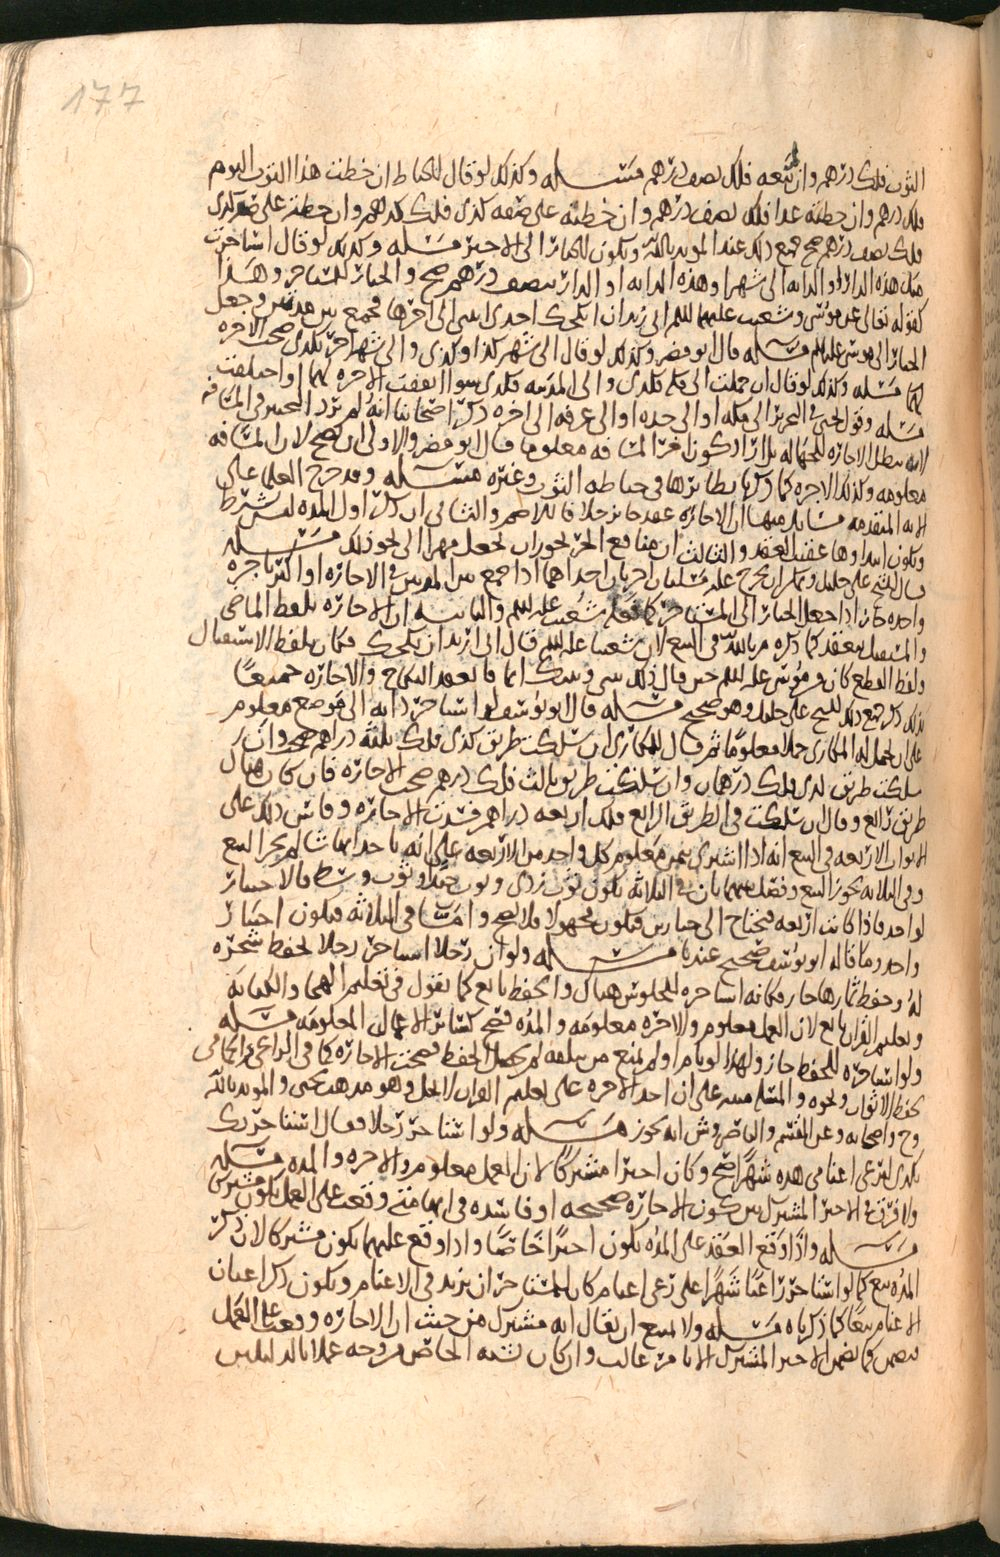 177
الثوب فلك درهم وان لم تبعه فلك نصف درهم مسله وكذلك لو قال للخياط ان خطت هذا الثوب اليوم
فلك درهم وان خطته غدا فلك نصف درهم وان خطته على صفه كذى فلك كذا درهم وان خطته على صفه كذى
فلك نصف درهم صح جميع ذلك عند المويد بالله ويكون الخيار الى الاجير مسله وكذلك لو قال استاجرت
منك هذه الدار او الدابه الى شهر او هذه الدابه او الدار بنصف درهم صح والخيار للمستاجر وهذا
كقوله تعالى عن موسى وشعيب عليهما السلم اني اريد ان انكحك احدى ابنتي الى اخرها فجمع بين مدتين وجعل
الخيار الى موسى عليه السلم مسله قال ابو مضر وكذلك لو قال الى شهر كذا وكذى والى شهر اخر بكذى صحت الاجره
كلها مسله وكذلك لو قال ان حملت الى مكه فلك كذى والى المدينه فلك كذى سوا اتفقت الاجره كلها او اختلفت
مسله وقول يحيى في التحرير الى مكه او الى جده او الى عرفه الى اخره ذكر اصحابنا انه لم يرد التخيير في المسافه
لانه يبطل الاجاره للجهاله بل اراد كون اخر المسافه معلوما قال ابو مضر والاولى ان يصح لان المسافه
معلومه وكذلك الاجره كما ذكرنا نظائرها في خياطه الثوب وغيره مسله وقد خرج العلما على
الايه المتقدمه مسائل منها ان الاجاره عقد جائز خلافا للاصم والثاني ان ذكر اول المده ليس بشرط
ويكون ابتداوها عقيب العقد والثالث ان منافع الحر يجوز ان تجعل مهرا الى نحو ذلك مسله
قال الشيخ علي خليل ويمكن ان يخرج عليه مسلتان اخريان احداهما اذا جمع بين المدتين في الاجاره او اكثر باجره
واحده جاز اذا جعل الخيار الى المستاجر كما فعله شعيب عليه السلم والثانيه ان الاجاره بلفظ الماضي
والمستقبل تنعقد كما ذكره م بالله في البيع لان شعيبا عليه السلم قال اني اريد ان انكحك فكان بلفظ الاستقبال
ولفظ القطع كان من موسى عليه السلم حين قال ذلك بيني وبينك ايما فانعقد النكاح والاجاره جميعًا
بذلك ذكر جميع ذلك الشيخ علي خليل وهو صحيح مسله قال ابو يوسف لو استاجر دابه الى موضع معلوم
على ان يحمل له المكاري حملا معلومًا ثم قال للمكاري ان سلكت طريق كذى فلك ثلثه دراهم صح وان
سلكت طريق كذى فلك درهمان وان سلكت طريق ثالث فلك درهم صحت الاجاره فان كان هناك
طريق رابع وقال ان سلكت في الطريق الرابع فلك اربعه دراهم فسدت الاجاره وقاس ذلك على
الاثواب الاربعه في البيع انه اذا اشترى بثمن معلوم كل واحد من الاربعه على انه ياخذ ايها شا لم يجز البيع
وفي الثلاثه يجوز البيع وفصل بينهما بان في الثلاثه يكون ثوب ردي وثوب جيدًا وثوب وسط فالاختيار
لواحد فاذا كانت اربعه يحتاج الى خيارين فيكون مجهولا فلا يصح واما في الثلاثه فيكون اختيار
واحد وما قاله ابو يوسف صحيح عندنا مسله ولو ان رجلا استاجر رجلا لحفظ شجره
له وحفظ ثمارها جاز فكانه استاجره للجلوس هناك والحفظ تابع كما نقول في تعليم الهجا والكتابه
وتعليم القران تابع لان العمل معلوم والاجره معلومه والمده فصح كسائر الاعمال المعلومه مسله
ولو استاجره للحفظ جاز ولهذا لو نام او لم يمنع من يتلفه لم يحصل الحفظ فصحت الاجاره كما في الراعي والحمامي
يحفظ الاثواب ونحوه والمسله مبنيه على ان اخذ الاجره على تعليم القران لا يحل وهو مذهب يحيى والمويد بالله
وح واصحابه وعن القسم والناصر وش انه يجوز مسله ولو استاجر رجلا وقال استاجرتك
بكذى لترعى اغنامي هذه شهرًا صح وكان اجيرا مشتركًا لان العمل معلوم والاجره والمده مسله
ولا فرق في الاجير المشترك بين كون الاجاره صحيحه او فاسده في انها متى وقعت على العمل يكون مشتركا
مسله واذا وقع العقد على المده يكون اجيرًا خاصًا واذا وقع عليهما يكون مشتركا لان ذكر
المده تبع كما لو استاجر راعيًا شهرًا على رعي اغنام كان للمستاجر ان يزيد في الاغنام ويكون ذكر اعيان
الاغنام تبعًا كما ذكرناه مسله ولا يمتنع ان يقال انه مشترك من حيث ان الاجاره وقعت على العمل
فيضمن كما يضمن الاجير المشترك الا من امر غالب وان كان يشبه الخاص من وجه عملا بالدليلين